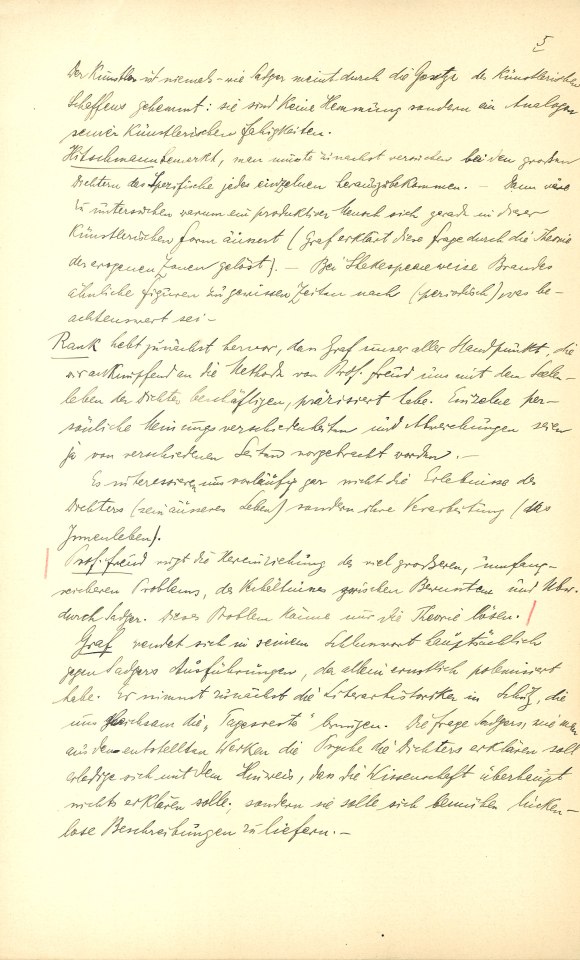 5
Der Künstler ist niemals – wie Sadger meint durch die Gesetze des künstlerischen
Schaffens gehemmt: sie sind keine Hemmung sondern ein Analogon
seiner künstlerischen Fähigkeiten.
Hitschmann bemerkt, man müsste zunächst versuchen bei den grossen
Dichtern das Spezifische jedes einzelnen herauszubekommen. – Dann wäre
zu untersuchen warum ein produktiver Mensch sich gerade in dieser
künstlerischen Form äussert (Graf erklärt diese Frage durch die Theorie
der erogenen Zonen gelöst). – Bei Shakespeare weise Brandes
ähnliche Figuren zu gewissen Zeiten nach (periodisch) was be-
achtenswert sei –
Rank hebt zunächst hervor, dass Graf unser aller Standpunkt, die
wir anknüpfend an die Methode von Prof. Freud uns mit dem Seelen-
leben der Dichter beschäftigen, präzisiert habe. Einzelne per-
sönliche Meinungsverschiedenheiten und Abweichungen seien
ja von verschiedenen Seiten vorgebracht worden. –
Es interessieren uns vorläufig gar nicht die Erlebnisse des
Dichters (sein äusseres Leben) sondern ihre Verarbeitung (das
Innenleben).
Prof. Freud rügt die Hereinziehung des viel grösseren, umfang-
reicheren Problems, des Verhältnisses zwischen Bewusstem und Unbew.
durch Sadger. Dieses Problem könne nur die Theorie lösen.
Graf wendet sich in seinem Schlusswort hauptsächlich
gegen Sadgers Ausführungen, der allein ernstlich polemisiert
habe. Er nimmt zunächst die Literarhistoriker in Schutz, die
uns gleichsam die „Tagesreste" bringen. Die Frage Sadgers, wie man
aus den entstellten Werken die Psyche des Dichters erklären soll
erledige sich mit dem Hinweis, dass die Wissenschaft überhaupt
nichts erklären solle, sondern sie solle sich bemühen lücken-
lose Beschreibungen zu liefern. –